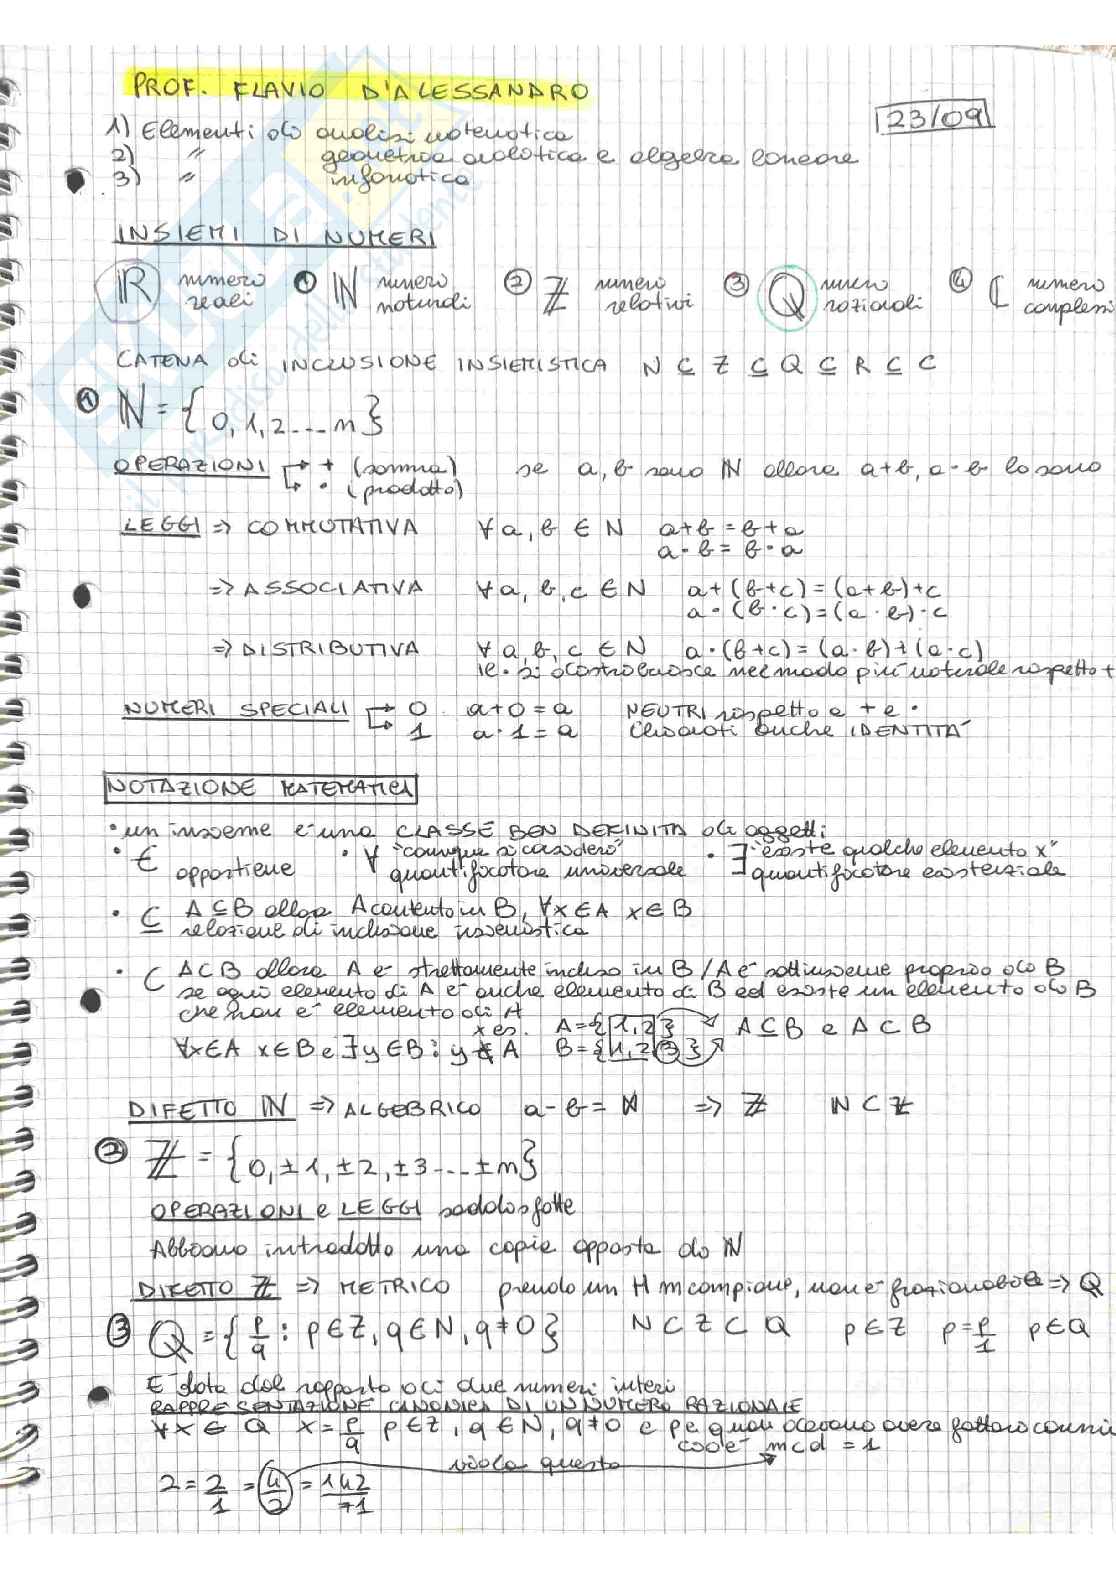 PROF. FLAVIO D'ALESSANDRO
23/09
1) Elementi di analisi matematica
2) " geometria analitica e algebra lineare
3) " informatica
INSIEMI DI NUMERI
ℝ numero reali ① ℕ numero naturali ② ℤ numero relativi ③ ℚ numero razionali ④ ℂ numero complessi
CATENA di INCLUSIONE INSIEMISTICA N ⊆ Z ⊆ Q ⊆ R ⊆ C
① ℕ = {0, 1, 2 --- m}
OPERAZIONI → + (somma) se a, b sono ℕ allora a+b, a·b lo sono
→ · (prodotto)
LEGGI ⇒ COMMUTATIVA ∀ a, b ∈ N a+b = b+a
a·b = b·a
⇒ ASSOCIATIVA ∀ a, b, c ∈ N a+(b+c) = (a+b)+c
a·(b·c) = (a·b)·c
⇒ DISTRIBUTIVA ∀ a, b, c ∈ N a·(b+c) = (a·b)+(a·c)
il · si distribuisce nel modo più naturale rispetto +
NUMERI SPECIALI → 0 a+0 = a NEUTRI rispetto a + e ·
→ 1 a·1 = a chiamati anche IDENTITÀ
NOTAZIONE MATEMATICA
• un insieme è una CLASSE BEN DEFINITA di oggetti
• ∈ appartiene • ∀ "comunque si consideri" quantificatore universale • ∃ "esiste qualche elemento x" quantificatore esistenziale
• ⊆ A ⊆ B allora A contenuto in B, ∀x∈A x∈B
relazione di inclusione insiemistica
• ⊂ A⊂B allora A è strettamente incluso in B / A è sottinsieme proprio di B
se ogni elemento di A è anche elemento di B ed esiste un elemento di B
che non è elemento di A
x es. A = {1,2} A⊆B e A⊂B
∀x∈A x∈B e ∃y∈B : y ∉ A B = {1,2,3}
DIFETTO ℕ ⇒ ALGEBRICO a-b = ℕ ⇒ ℤ N ⊂ ℤ
② ℤ = {0, ±1, ±2, ±3 --- ±m}
OPERAZIONI e LEGGI soddisfatte
Abbiamo introdotto una copia opposta di ℕ
DIFETTO ℤ ⇒ METRICO prendo un H m campione, non è frazionabile ⇒ Q
③ ℚ = {p/q : p∈Z, q∈N, q≠0} N ⊂ Z ⊂ Q p∈Z p = p/1 p∈Q
È data dal rapporto di due numeri interi
RAPPRESENTAZIONE CANONICA DI UN NUMERO RAZIONALE
∀x ∈ Q x = p/q p∈Z, q∈N, q≠0 e p e q non devono avere fattori comuni
cioè mcd = 1
viola questo
2 = 2/1 = 4/2 = 142/71